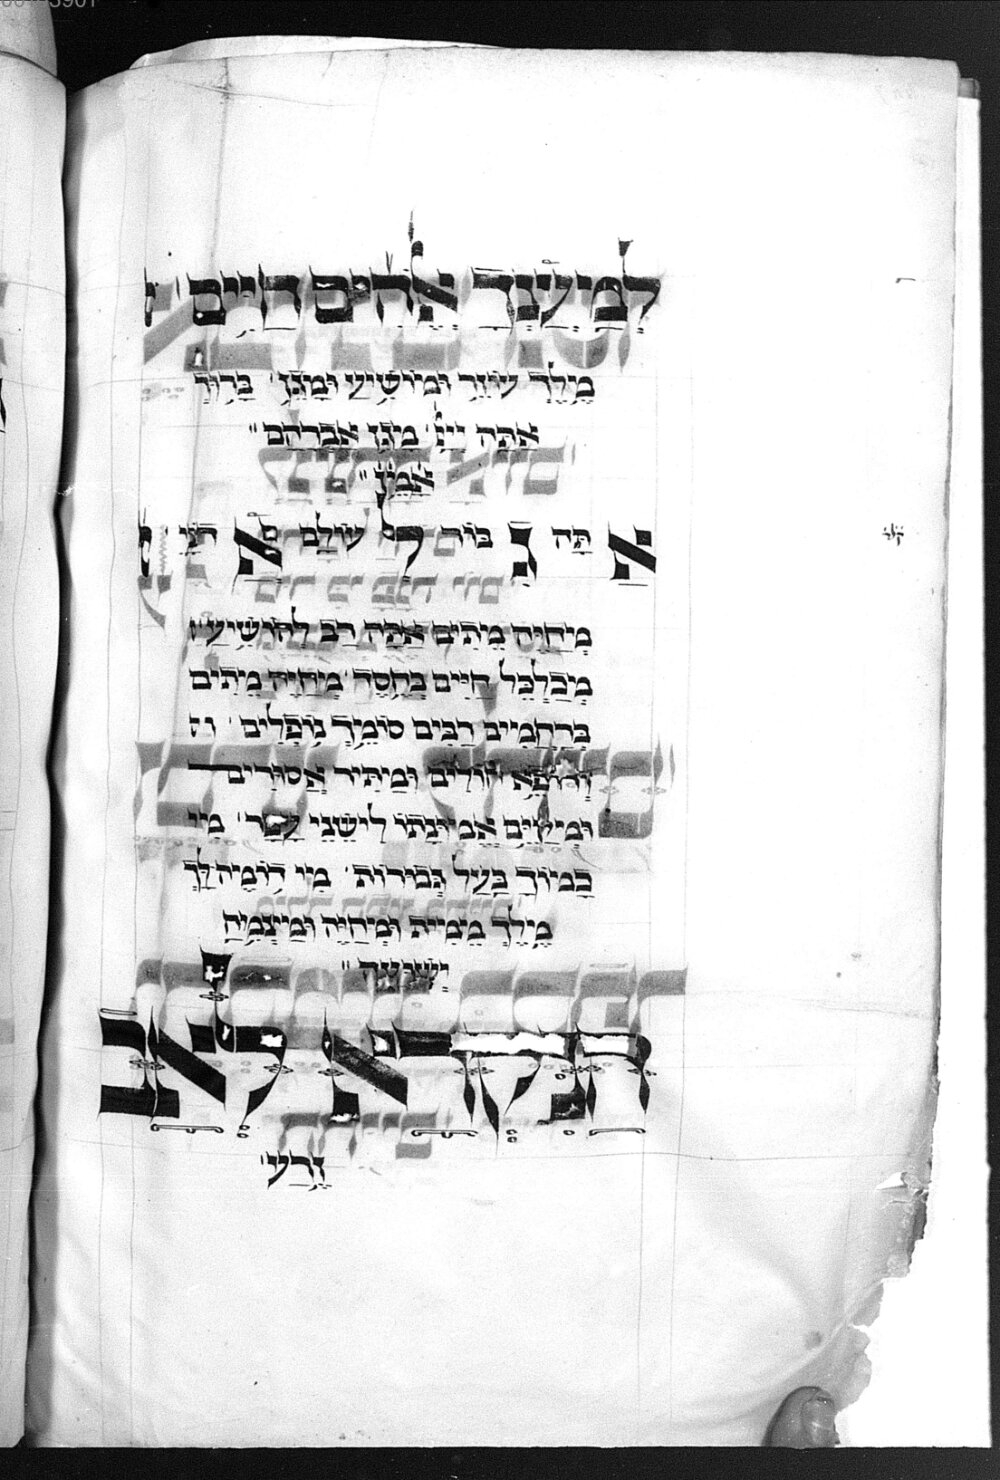 למעינך אלהים חיים
מילך עוזר ומושיע ומגן׳ ברוך
אתה ייי׳ מגן אברהם״
אמין״
אתה גבור לעולם אדני
מיחיה מיתים אתה רב להושיע״
מיכלכל חיים בחסד׳ מיחיה מיתים
ברחמיים רבים סומיך נופלים׳ וה
ורופא חולים ומיתיר אסורים
ומיקיים אמונתו לישני עפר׳ מיי
כמוך בעל גבורות׳ מי דומיה לך
מילך מימית ומיחיה ומיצמיח
ישועה״
זרעי׳